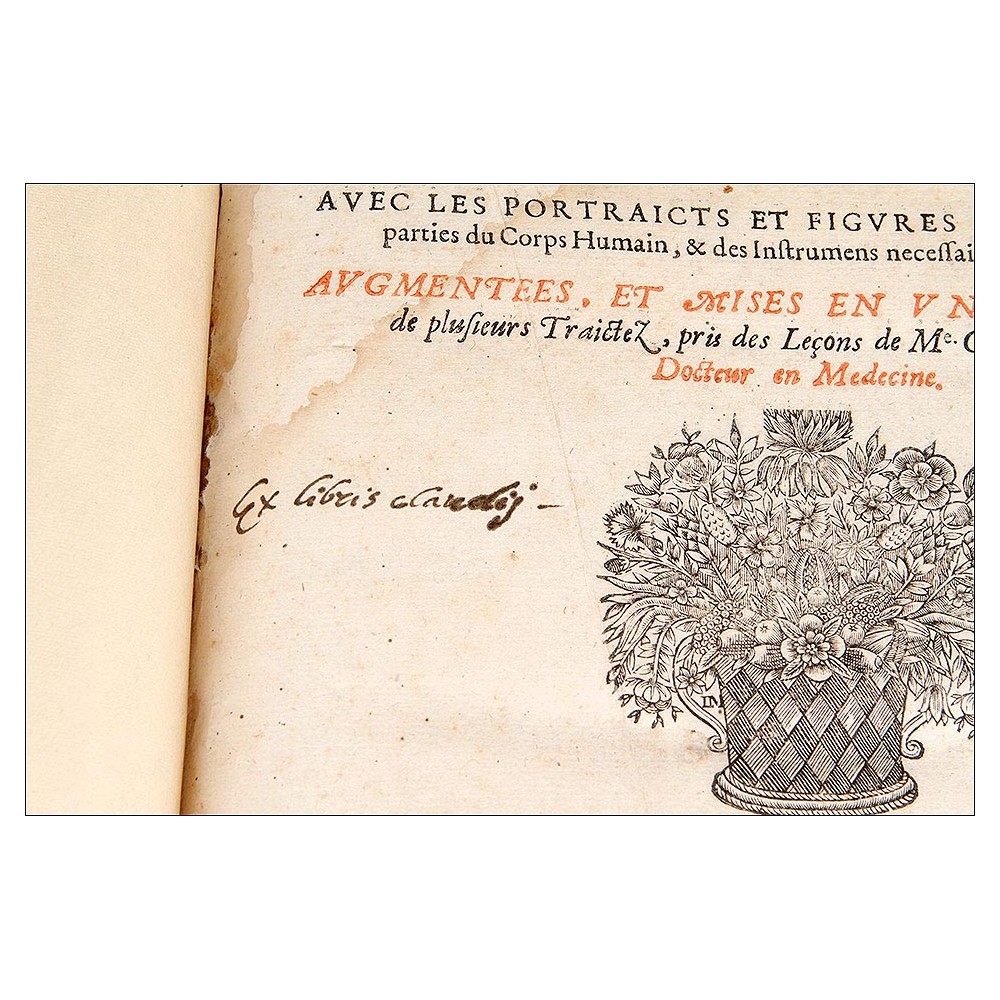 AVEC LES PORTRAICTS ET FIGVRES
parties du Corps Humain, & des Inſtrumens neceſſai
AVGMENTEES, ET MISES EN VN
de pluſieurs Traictez, pris des Leçons de Mᵉ.
Docteur en Medecine.
Ex libris claudij –
IM